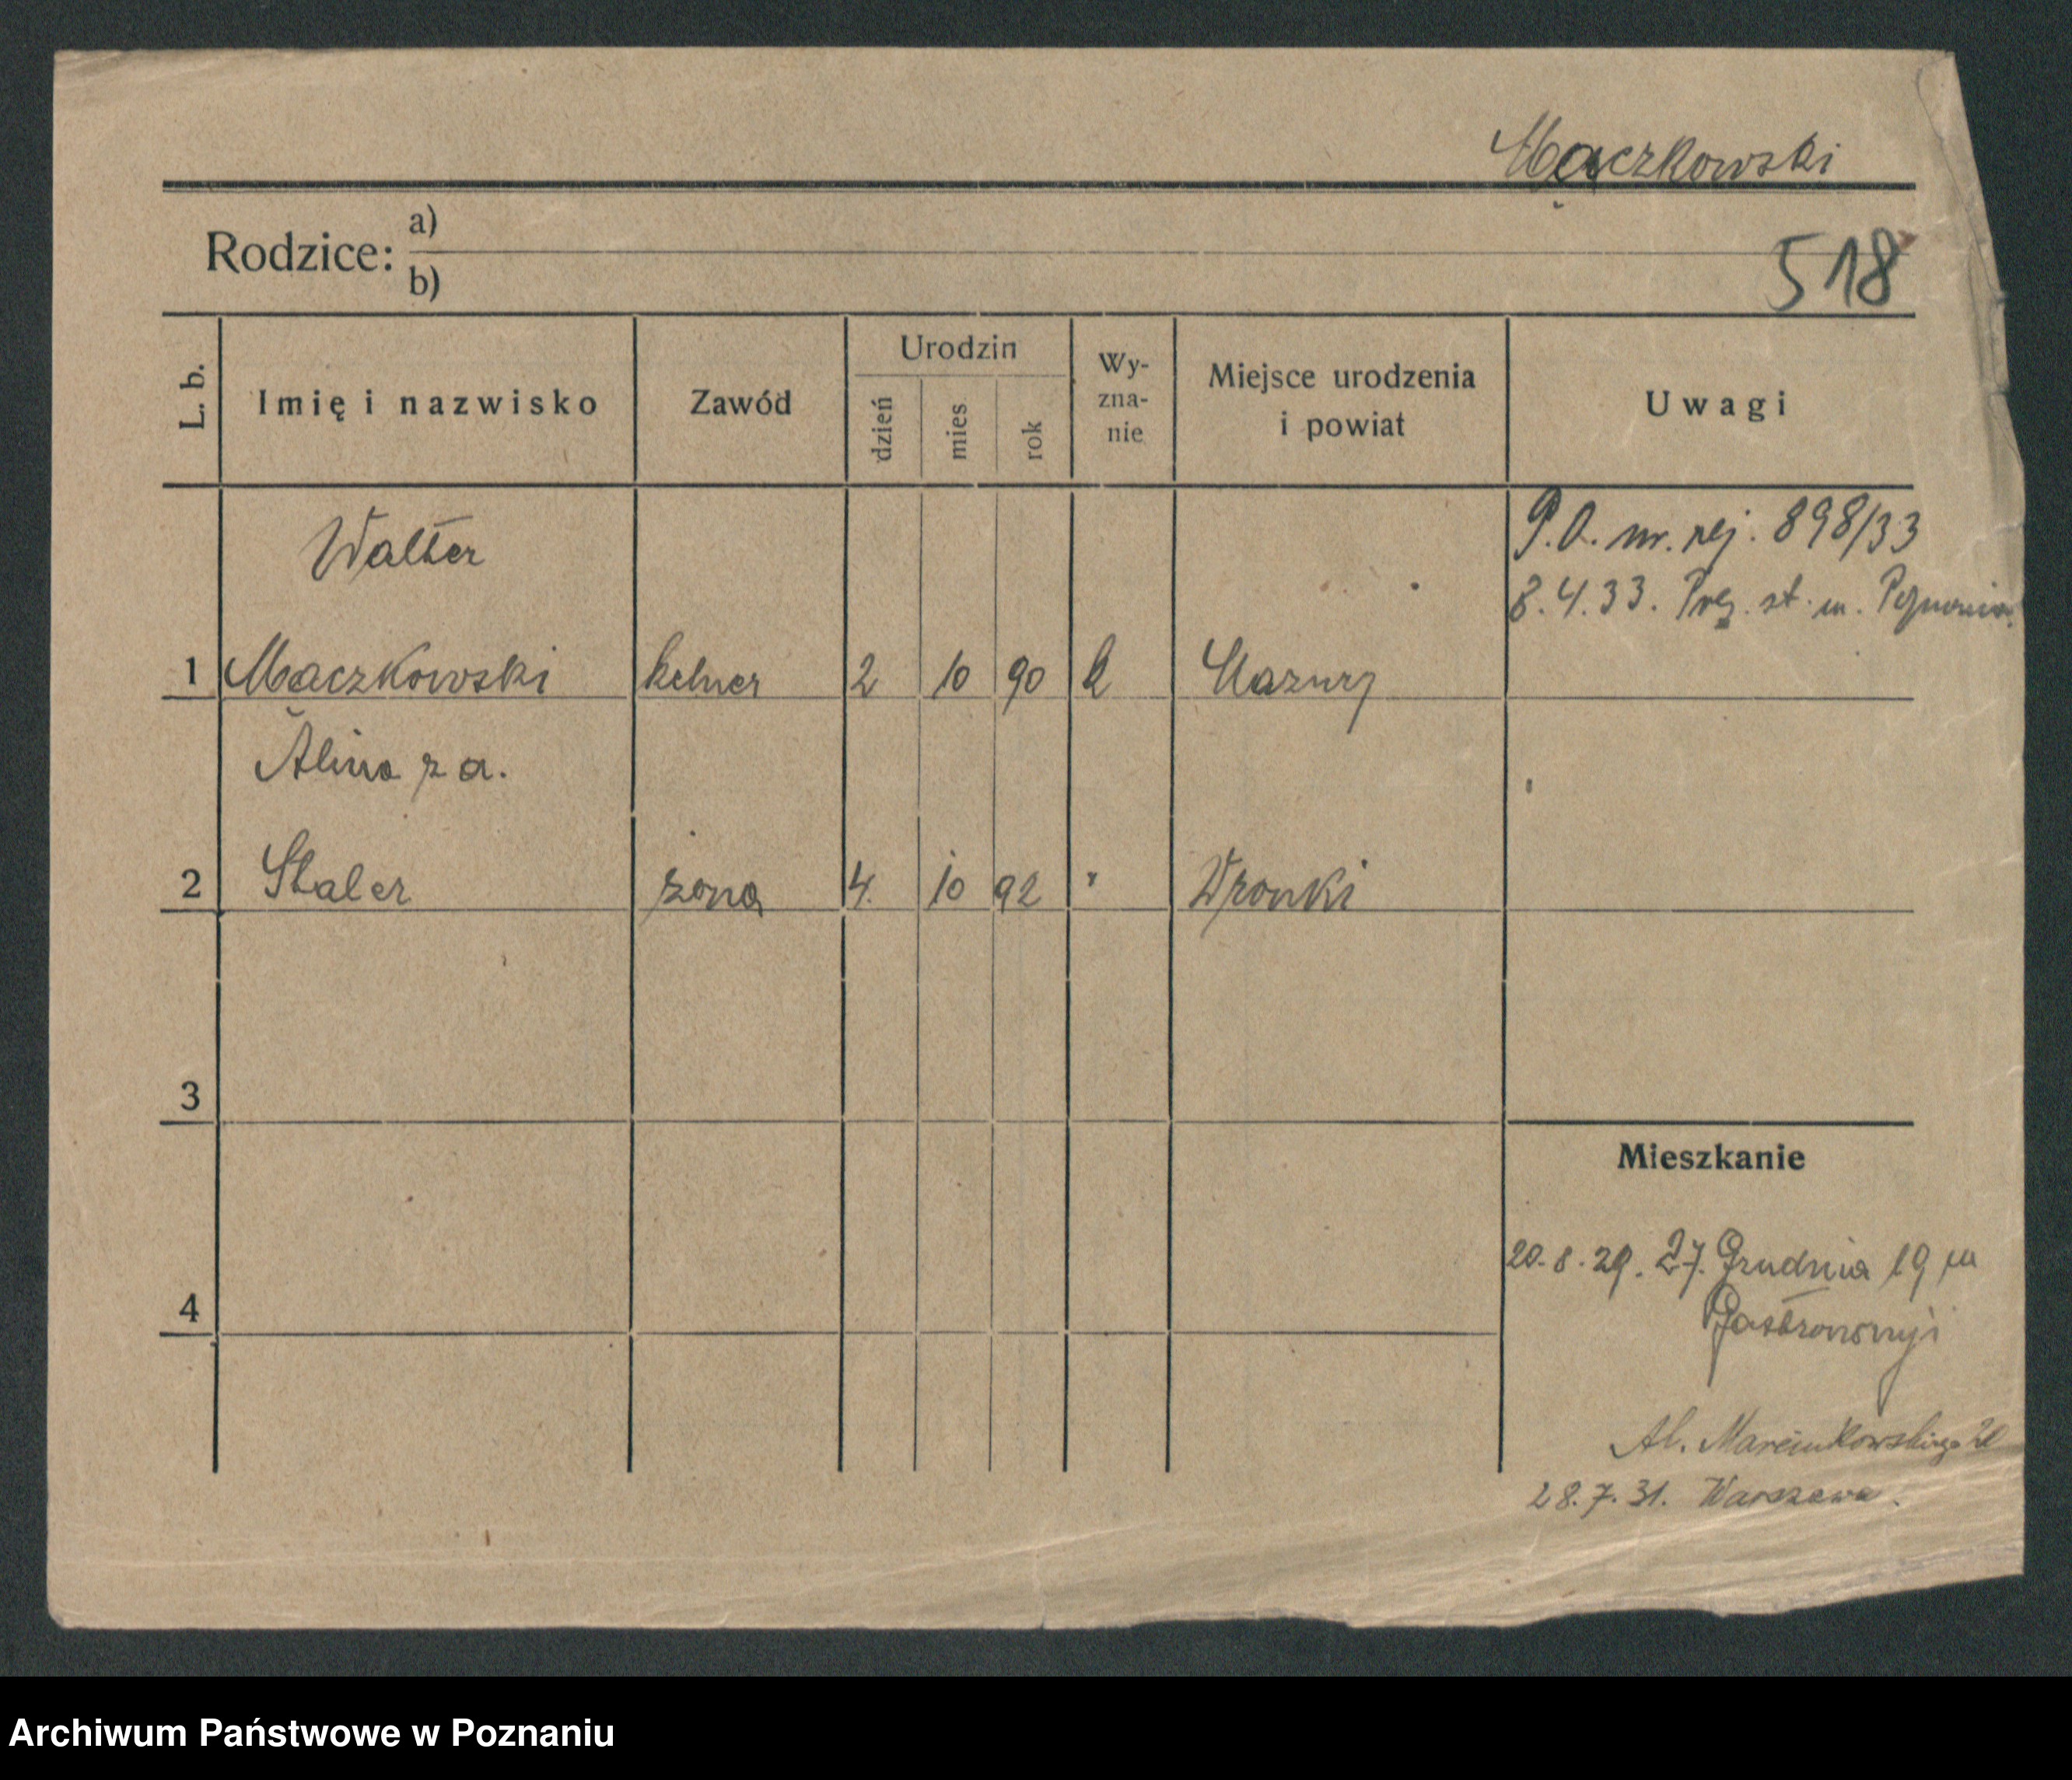 Mączkowski
Rodzice: a)
b)
518
L. b.
Imię i nazwisko
Zawód
Urodzin
dzień
mies
rok
Wy-
zna-
nie
Miejsce urodzenia
i powiat
Uwagi
Walter
P.O. nr. rej. 898/33
8.4.33. Prez. st. m. Poznania
1 Mączkowski kelner 2 10 90 Mazury
Alina z d.
2 Staler żona 4. 10 92 " Wronki
3
Mieszkanie
20.8.29. 27 Grudnia 19 m
4
Al. Marcinkowskiego
28.7.31. Warszawa.
Archiwum Państwowe w Poznaniu